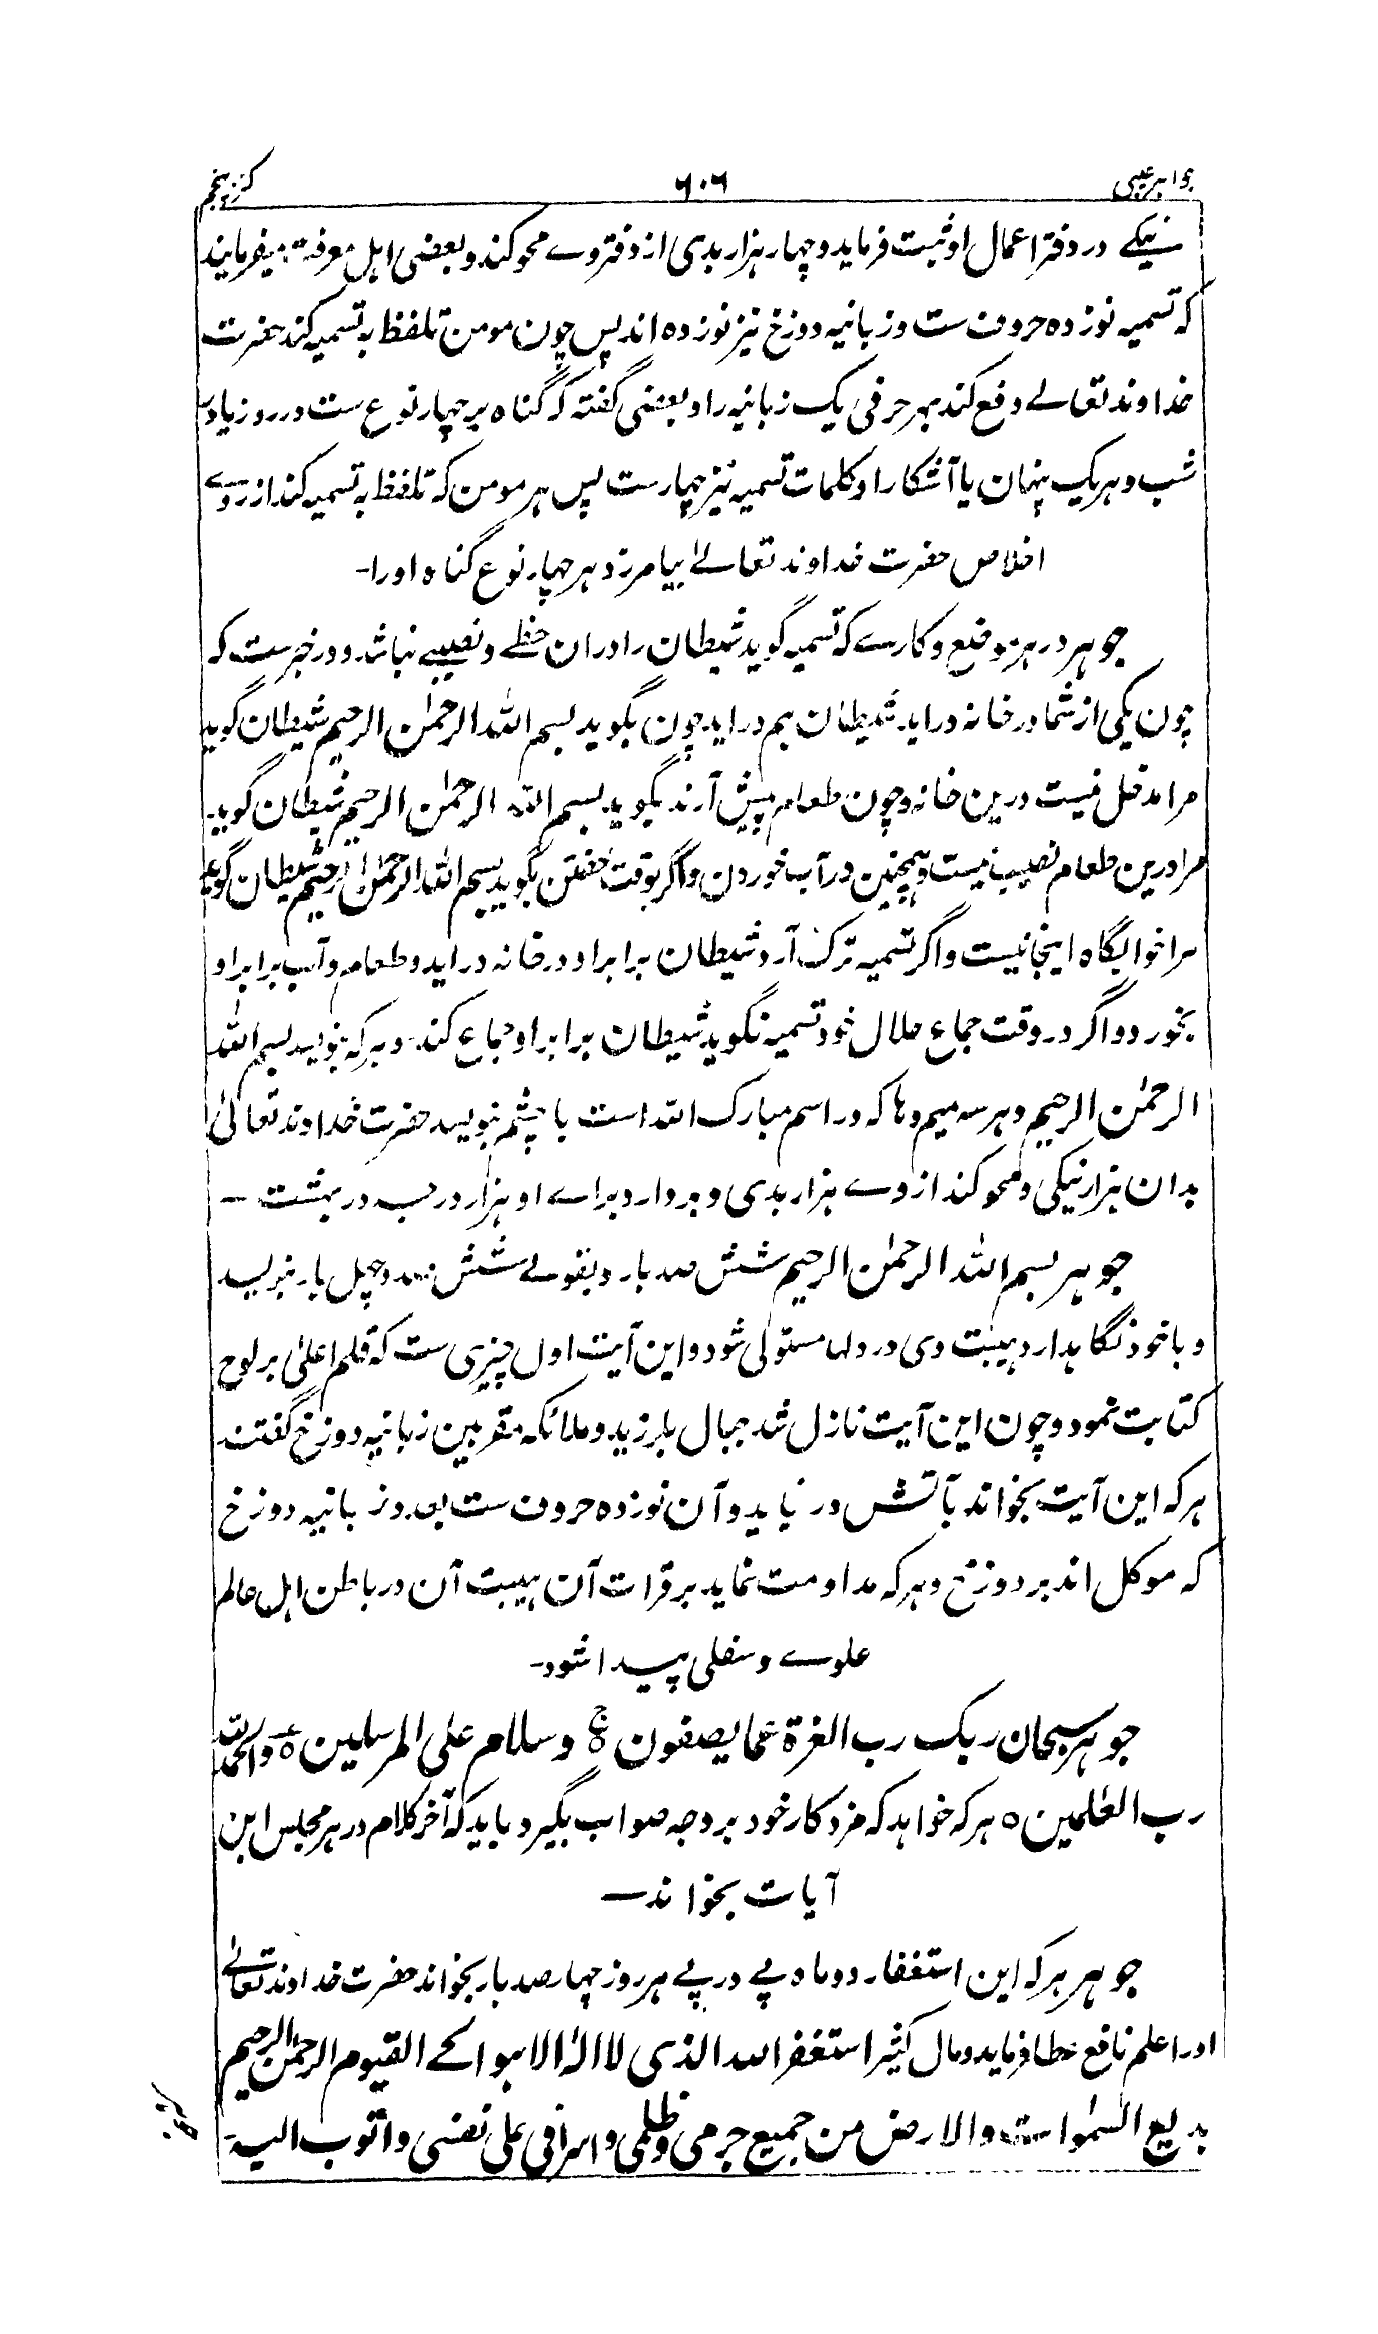 جواهر غیبی ۶۰۶ کنز پنجم
نیکے در دفتر اعمال او ثبت فرماید و چهار هزار بدی از دفتر وے محو کند و بعضی اهل معرفة میفرمایند
که تسمیه نوزده حروف ست و زبانیه دوزخ نیز نوزده اند پس چون مومن تلفظ به تسمیه کند حضرت
خداوند تعالے دفع کند بهر حرفی یک زبانیه را و بعضی گفته که گناه بر چهار نوع ست در روز یا در
شب و هر یک پنهان یا آشکارا و کلمات تسمیه نیز چهار ست پس هر مومن که تلفظ به تسمیه کند از روے
اخلاص حضرت خداوند تعالےٰ بیامرزد هر چهار نوع گناه او را۔
جوهر در هر موضع و کارے که تسمیه گوید شیطان را در ان حظے و نصیبے نباشد و در خبر ست که
چون یکی از شما در خانه در اید شیطان هم در اید چون بگوید بسم الله الرحمٰن الرحیم شیطان گوید
مرا مدخل نیست درین خانه و چون طعام پیش آرند بگوید بسم الله الرحمٰن الرحیم شیطان گوید
مرا درین طعام نصیب نیست و همچنین در آب خوردن و اگر بوقت خفتن بگوید بسم الله الرحمٰن الرحیم شیطان گوید
مرا خوابگاه اینجا نیست و اگر تسمیه ترک آرد شیطان برابر او در خانه در اید و طعام و آب برابر او
بخورد و اگر در وقت جماع حلال خود تسمیه نگوید شیطان برابر او جماع کند۔ و هر که بنویسد بسم الله
الرحمٰن الرحیم و هر سه میم و ها که در اسم مبارک الله است با چشم بنویسد حضرت خداوند تعالیٰ
بدان هزار نیکی و محو کند از وے هزار بدی و بردارد براے او هزار درجه در بهشت ۔
جوهر بسم الله الرحمٰن الرحیم شش صد بار و بقولے شش صد و چهل بار بنویسد
و با خود نگاهدارد هیبت وی در دلها مستولی شود و این آیت اول چیزی ست که قلم اعلیٰ بر لوح
کتابت نمود و چون این آیت نازل شد جبال بلرزید و ملائکه مقربین زبانیه دوزخ گفتند
هر که این آیت بخواند بآتش در نیاید و آن نوزده حروف ست بعدد زبانیه دوزخ
که موکل اند بر دوزخ و هر که مداومت نماید بر قرات آن هیبت آن در باطن اهل عالم
علوے و سفلی پیدا شود۔
جوهر سبحان ربک رب العزة عما یصفون ه وسلام علی المرسلین ه والحمد لله
رب العٰلمین ه هر که خواهد که مزد کار خود بر وجه صواب بگیرد باید که آخر کلام در هر مجلس این
آیات بخواند ۔
جوهر هر که این استغفار دو ماه پے در پے هر روز چهار صد بار بخواند حضرت خداوند تعالےٰ
او را علم نافع عطا فرماید و مال کثیر استغفر الله الذی لا اله الا هو الحے القیوم الرحمٰن الرحیم
بدیع السمٰوات والارض من جمیع جرمی وظلمی واسرافی علی نفسی واتوب الیه۔